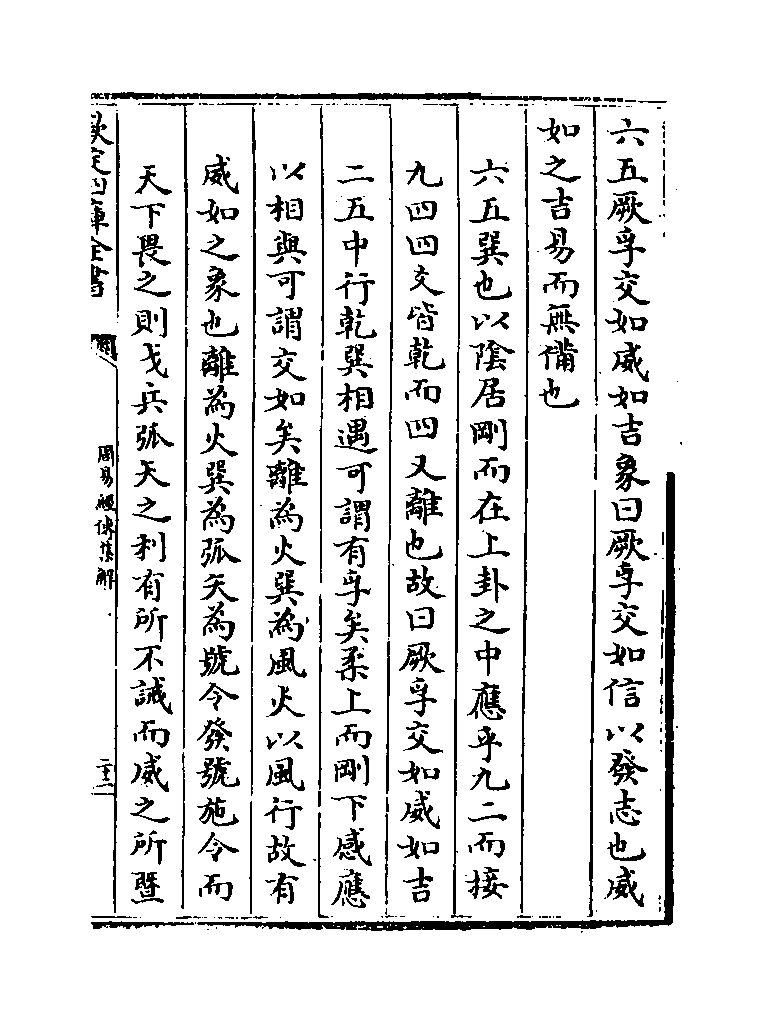 六五厥孚交如威如吉象曰厥孚交如信以發志也威
如之吉易而無備也
六五巽也以陰居剛而在上卦之中應乎九二而接
九四四交皆乾而四又離也故曰厥孚交如威如吉
二五中行乾巽相遇可謂有孚矣柔上而剛下感應
以相與可謂交如矣離為火巽為風火以風行故有
威如之象也離為火巽為弧矢為號令發號施令而
天下畏之則戈兵弧矢之利有所不試而威之所曁
欽定四庫全書
周易經傳集解
二十三